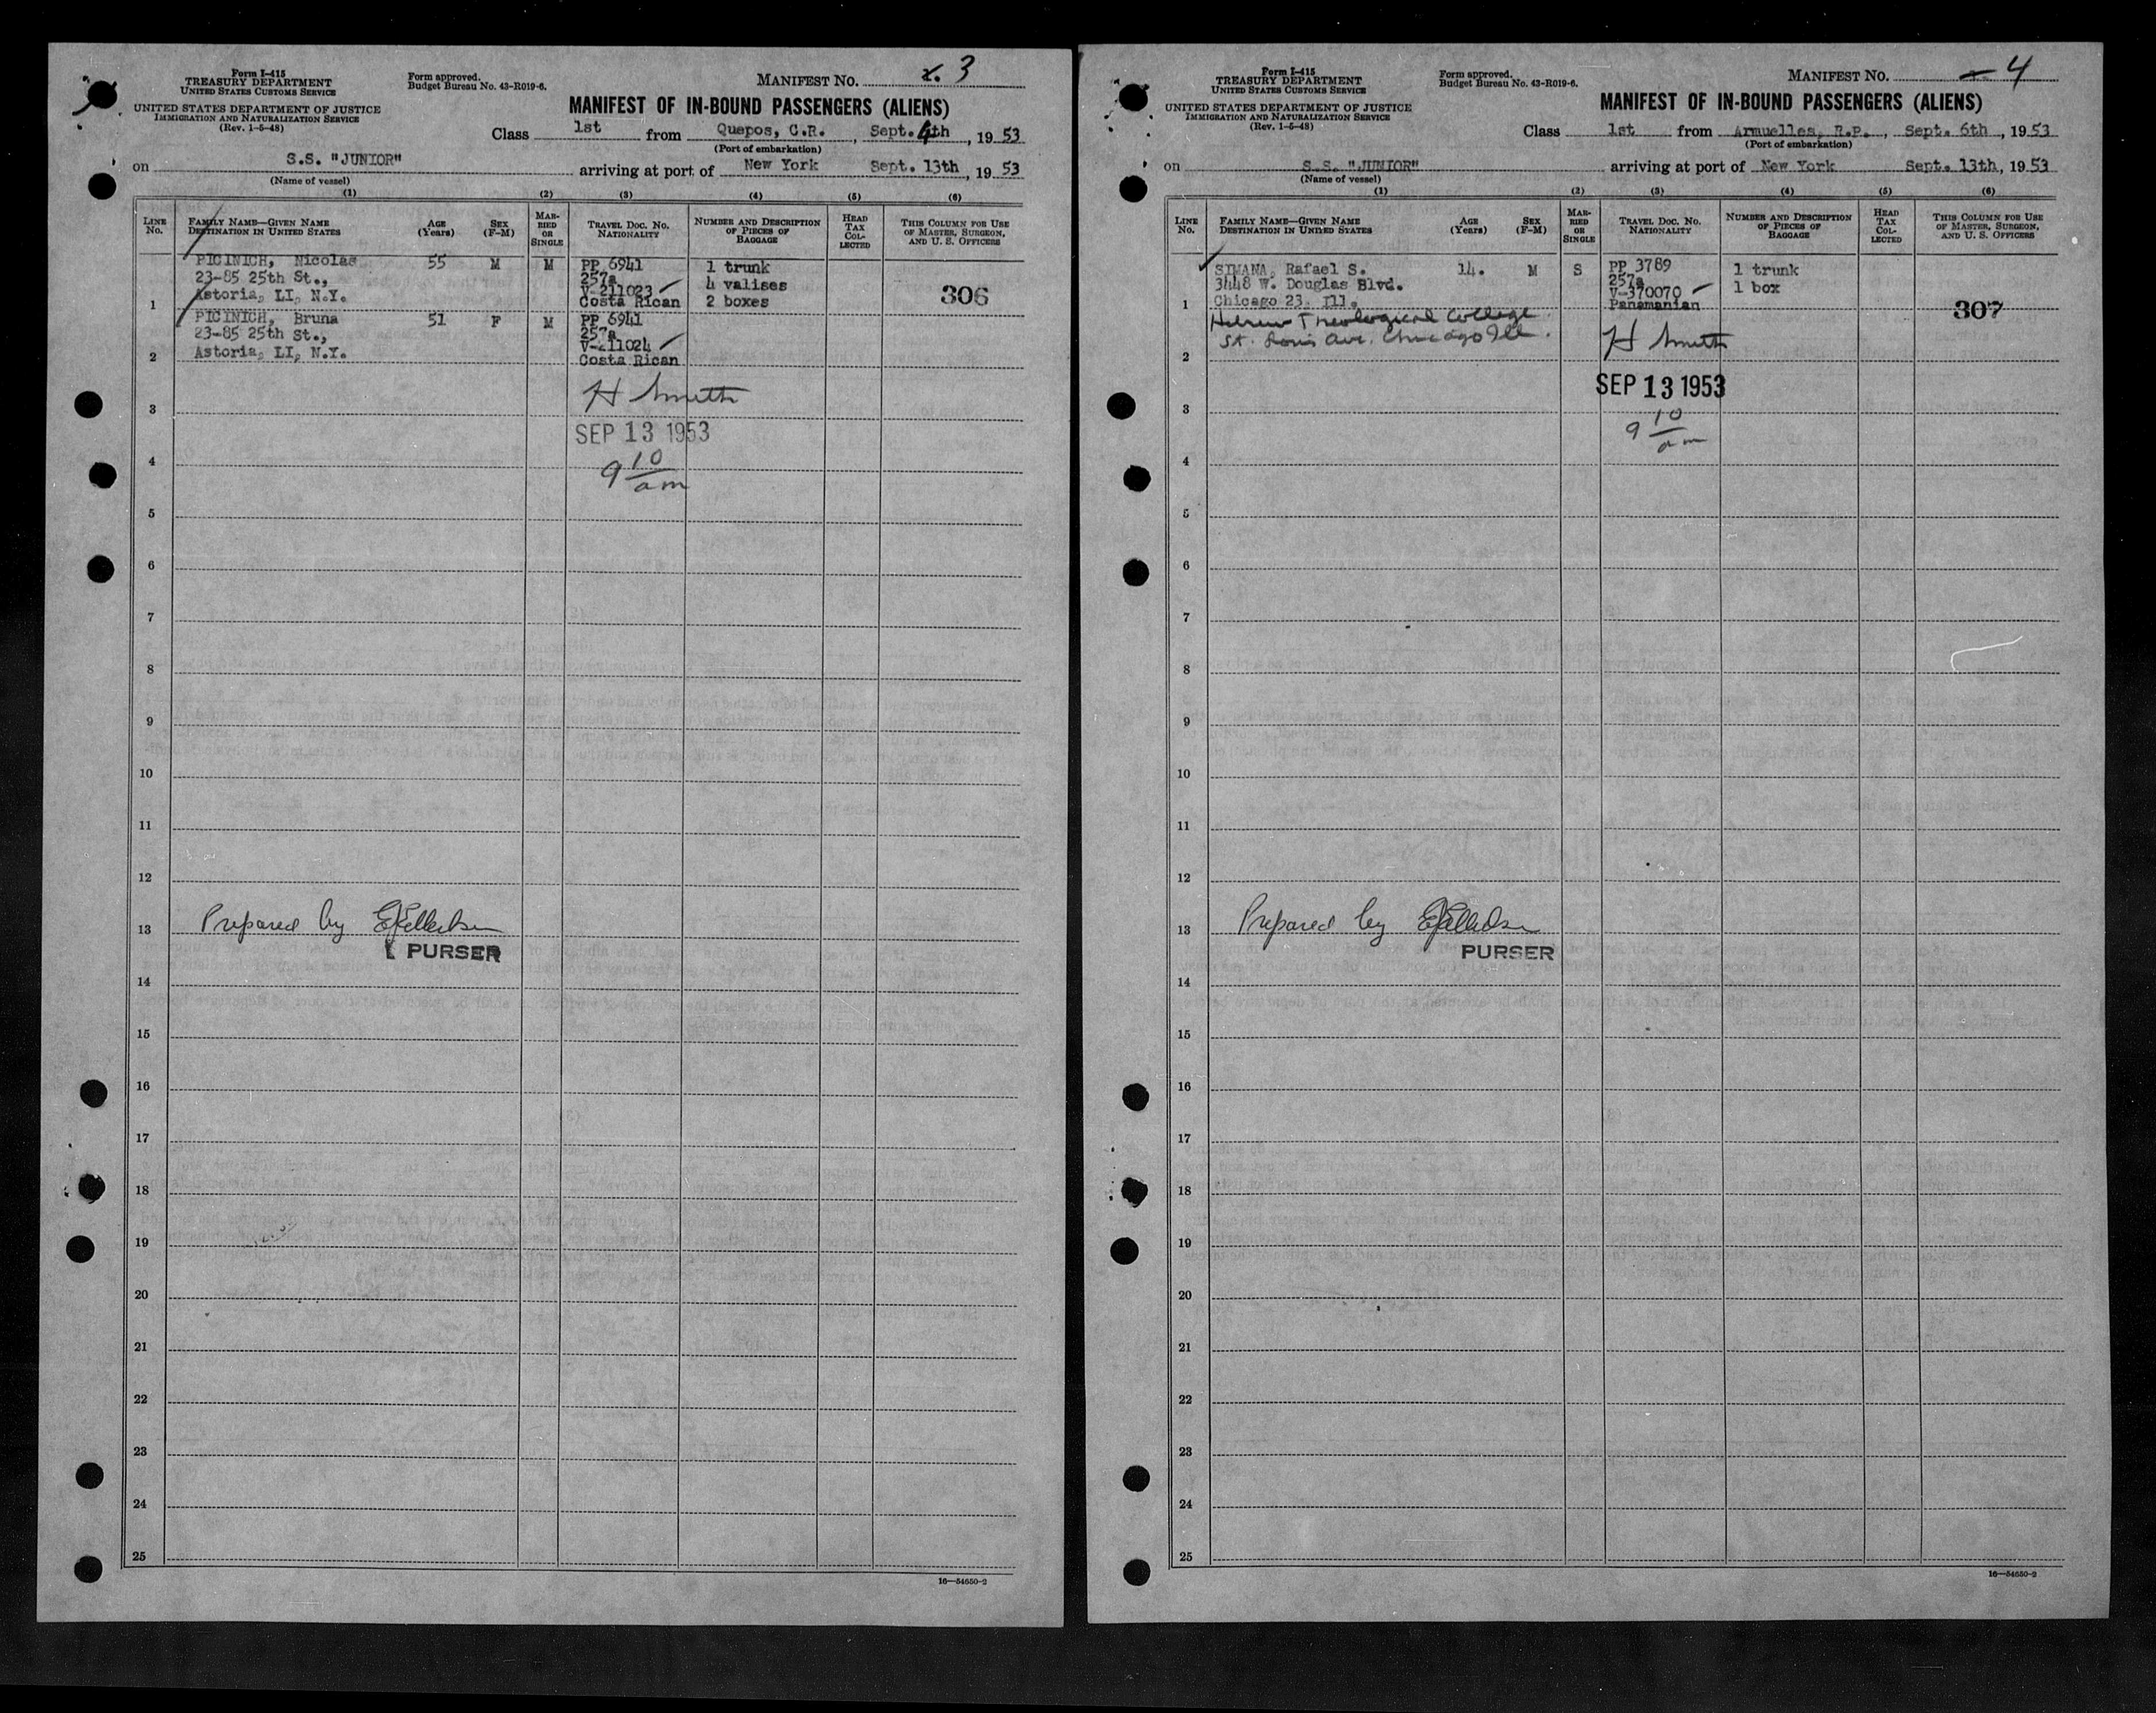 Form I-415
TREASURY DEPARTMENT
UNITED STATES CUSTOMS SERVICE
UNITED STATES DEPARTMENT OF JUSTICE
IMMIGRATION AND NATURALIZATION SERVICE
(Rev. 1-5-48)
Form approved.
Budget Bureau No. 43-R019-6.
MANIFEST NO. 3
MANIFEST OF IN-BOUND PASSENGERS (ALIENS)
Class 1st from Quepos, C.R., Sept. 4th, 1953
(Port of embarkation)
on S.S. "JUNIOR" arriving at port of New York Sept. 13th, 1953
(Name of vessel)
(1) (2) (3) (4) (5) (6)
LINE No.
FAMILY NAME—GIVEN NAME
DESTINATION IN UNITED STATES
AGE (Years)
SEX (F-M)
MARRIED OR SINGLE
TRAVEL DOC. NO.
NATIONALITY
NUMBER AND DESCRIPTION OF PIECES OF BAGGAGE
HEAD TAX COLLECTED
THIS COLUMN FOR USE OF MASTER, SURGEON, AND U. S. OFFICERS
PICINICH, Nicolas 55 M M PP 6941 1 trunk
23-85 25th St., 257a 4 valises
Astoria, LI, N.Y. V-211023 2 boxes 306
1 Costa Rican
PICINICH, Bruna 51 F M PP 6941
23-85 25th St., 257a
Astoria, LI, N.Y. V-211024
2 Costa Rican
H Smith
3
SEP 13 1953
4
9 10/am
5
6
7
8
9
10
11
12
13 Prepared by
PURSER
14
15
16
17
18
19
20
21
22
23
24
25
16—54650-2
Form I-415
TREASURY DEPARTMENT
UNITED STATES CUSTOMS SERVICE
UNITED STATES DEPARTMENT OF JUSTICE
IMMIGRATION AND NATURALIZATION SERVICE
(Rev. 1-5-48)
Form approved.
Budget Bureau No. 43-R019-6.
MANIFEST NO. 4
MANIFEST OF IN-BOUND PASSENGERS (ALIENS)
Class 1st from Armuelles, R.P., Sept. 6th, 1953
(Port of embarkation)
on S.S. "JUNIOR" arriving at port of New York Sept. 13th, 1953
(Name of vessel)
(1) (2) (3) (4) (5) (6)
LINE No.
FAMILY NAME—GIVEN NAME
DESTINATION IN UNITED STATES
AGE (Years)
SEX (F-M)
MARRIED OR SINGLE
TRAVEL DOC. NO.
NATIONALITY
NUMBER AND DESCRIPTION OF PIECES OF BAGGAGE
HEAD TAX COLLECTED
THIS COLUMN FOR USE OF MASTER, SURGEON, AND U. S. OFFICERS
SIMANA, Rafael S. 14. M S PP 3789 1 trunk
3448 W. Douglas Blvd. 257a 1 box
Chicago 23, Ill. V-370070
1 Panamanian 307
Hebrew Theological College
St. Louis Ave. Chicago Ill.
2 H Smith
SEP 13 1953
3
9 10/am
4
5
6
7
8
9
10
11
12
13 Prepared by
PURSER
14
15
16
17
18
19
20
21
22
23
24
25
16—54650-2